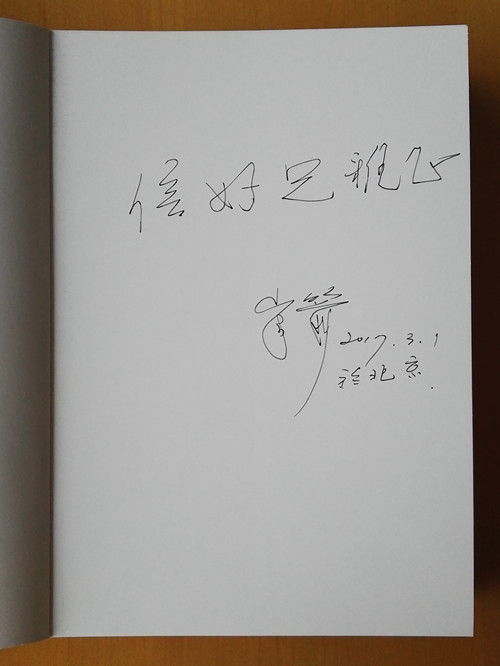 信好兄雅正
2017.3.1
於北京